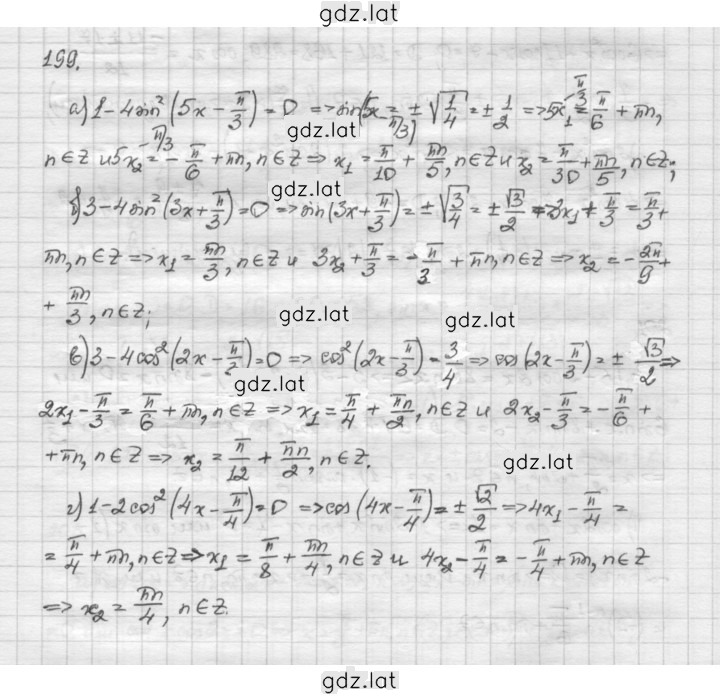 gdz.lat
199.
а) 1 - 4sin²(5x - π/3) = 0 => sin(5x - π/3) = ± √(1/4) = ± 1/2 => 5x₁ - π/3 = π/6 + πn,
gdz.lat
n∈Z и 5x₂ - π/3 = - π/6 + πn, n∈Z => x₁ = π/10 + πn/5, n∈Z и x₂ = π/30 + πn/5, n∈Z;
gdz.lat
б) 3 - 4sin²(3x + π/3) = 0 => sin(3x + π/3) = ± √(3/4) = ± √3/2 => 3x₁ + π/3 = π/3 +
πn, n∈Z => x₁ = πn/3, n∈Z и 3x₂ + π/3 = - π/3 + πn, n∈Z => x₂ = - 2π/9 +
+ πn/3, n∈Z;
gdz.lat
gdz.lat
в) 3 - 4cos²(2x - π/3) = 0 => cos²(2x - π/3) = 3/4 => cos(2x - π/3) = ± √3/2 =>
gdz.lat
2x₁ - π/3 = π/6 + πn, n∈Z => x₁ = π/4 + πn/2, n∈Z и 2x₂ - π/3 = - π/6 +
+ πn, n∈Z => x₂ = π/12 + πn/2, n∈Z.
gdz.lat
г) 1 - 2cos²(4x - π/4) = 0 => cos(4x - π/4) = ± √2/2 => 4x₁ - π/4 =
= π/4 + πn, n∈Z => x₁ = π/8 + πn/4, n∈Z и 4x₂ - π/4 = - π/4 + πn, n∈Z
=> x₂ = πn/4, n∈Z.
gdz.lat